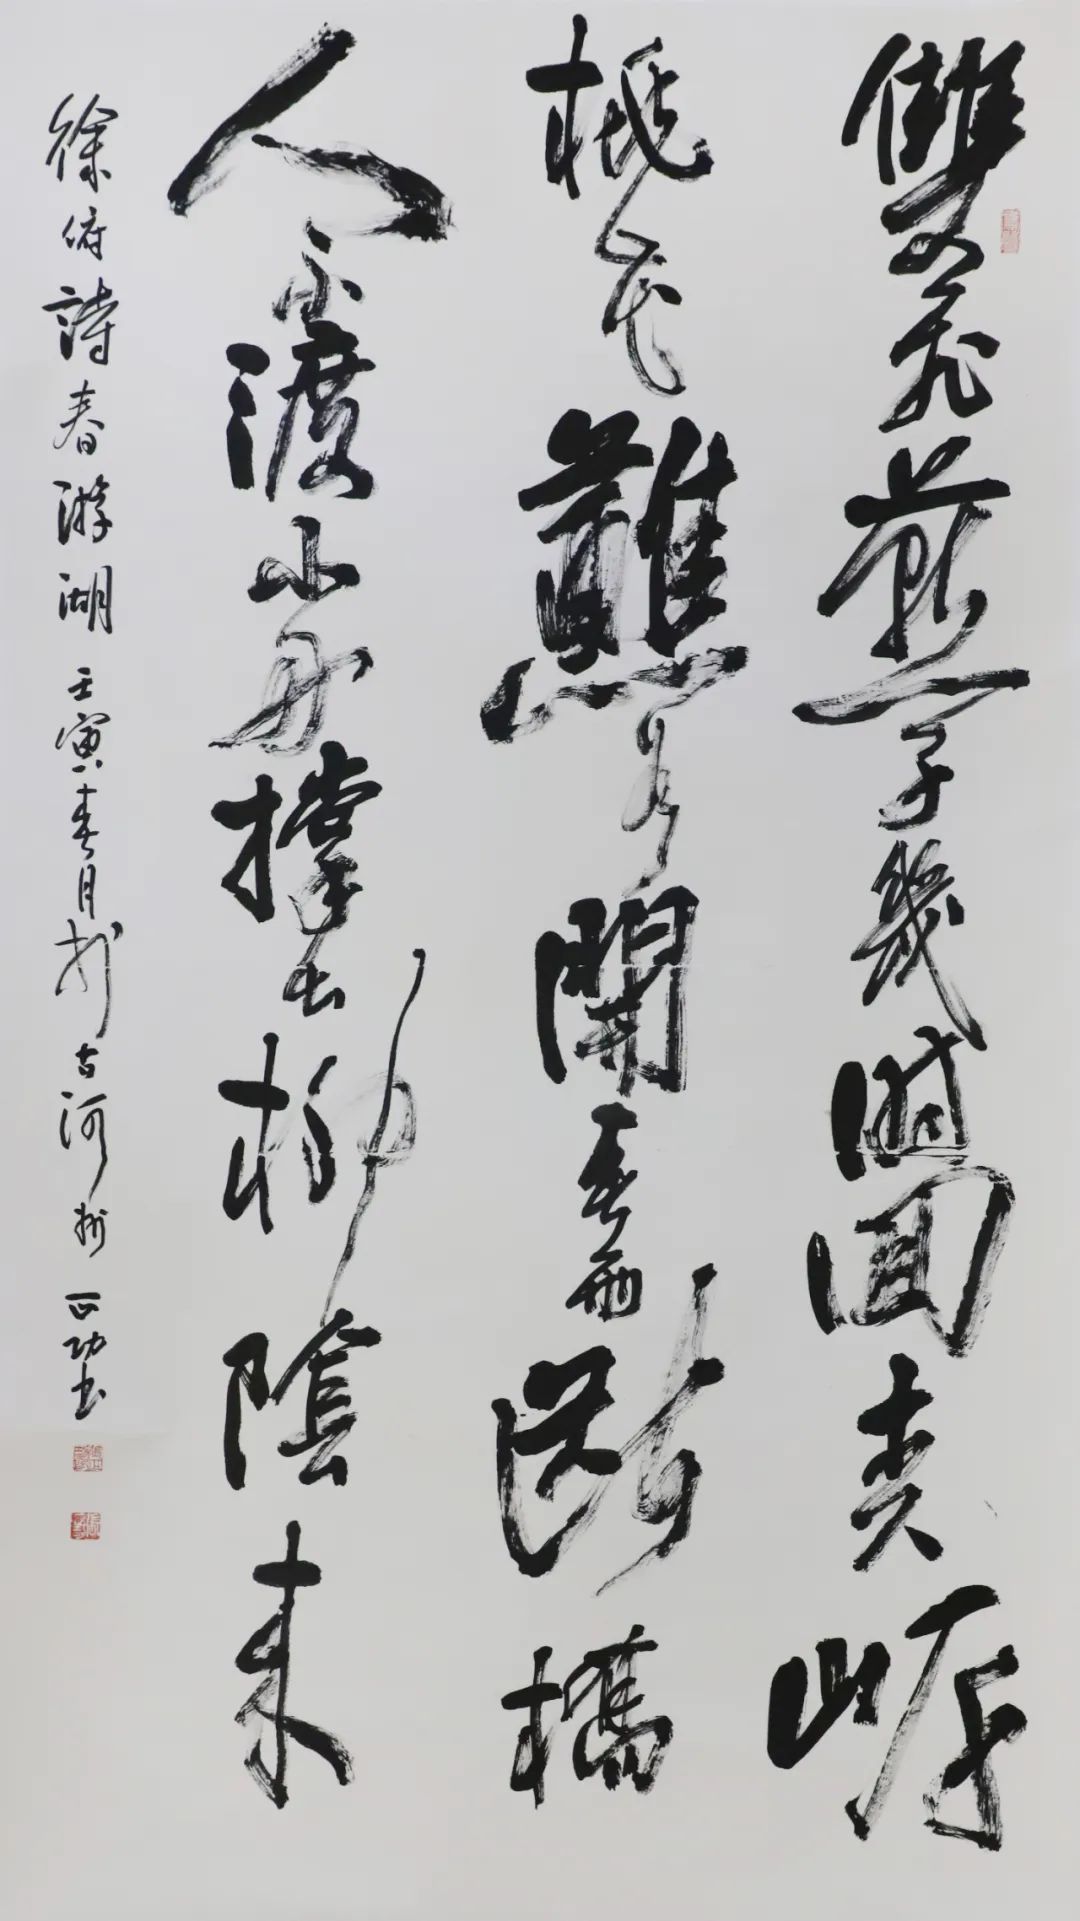 雙飛燕子幾時回夾岸
桃花蘸水開春雨斷橋
人不渡小舟撑出柳陰来
徐俯詩春游湖壬寅春月於古河州正功书